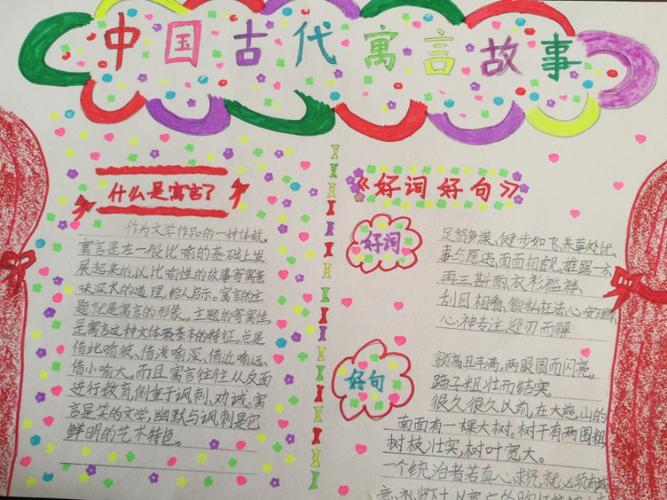 中国古代寓言故事
什么是寓言了
作为文学作品的一种体裁,
寓言是在一般比喻的基础上发
展起来的,以比喻性的故事寄寓意
味深长的道理,给人启示,寓言的主
是寓言这种文体最基本的特征,总是
借此喻彼、借浅喻深、借近喻远、
借小喻大,而且寓言往往从反面
进行教育,侧重于讽刺、劝诫,寓
言是笑的文学,幽默与讽刺是它
鲜明的艺术特色。
《好词好句》
好词
足智多谋、健步如飞、
事与愿违、面面相觑、
再三斟酌、衣衫褴褛、
刮目相看、徇私枉法、心安理
心神专注、迎刃而解
好句
额高且丰满,两眼圆而闪亮。
蹄子粗壮而结实。
很久很久以前,在大燕山的
南面有一棵大树。树干有两围粗
树枝壮实,树叶宽大。
一个统治者若真心求贤,就必须有诚